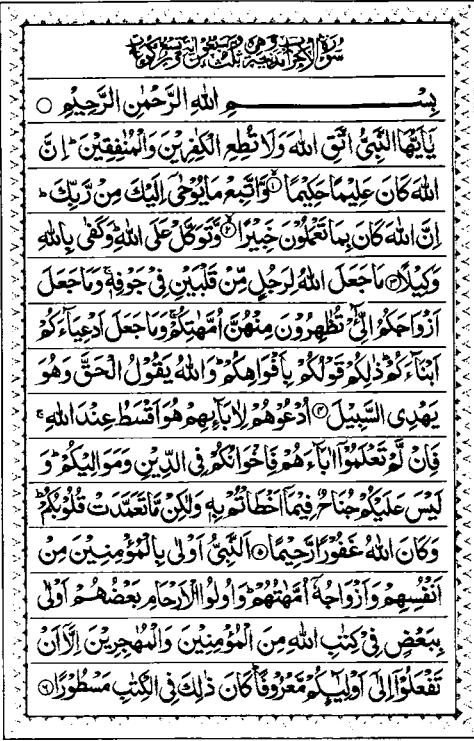 سُورَةُ الْاَحْزَابِ مَدَنِيَّةٌ وَّهِيَ ثَلٰثٌ وَّسَبْعُوْنَ اٰيَةً وَّتِسْعُ رُكُوْعَاتٍ
بِسْـــــــمِ اللّٰهِ الرَّحْمٰنِ الرَّحِيْمِ ○
يٰۤاَيُّهَا النَّبِيُّ اتَّقِ اللّٰهَ وَلَا تُطِعِ الْكٰفِرِيْنَ وَالْمُنٰفِقِيْنَ ؕ اِنَّ
اللّٰهَ كَانَ عَلِيْمًا حَكِيْمًا ۙ۱ وَّاتَّبِعْ مَا يُوْحٰۤى اِلَيْكَ مِنْ رَّبِّكَ ؕ
اِنَّ اللّٰهَ كَانَ بِمَا تَعْمَلُوْنَ خَبِيْرًا ۙ۲ وَّتَوَكَّلْ عَلَى اللّٰهِ ؕ وَكَفٰى بِاللّٰهِ
وَكِيْلًا ۳ مَا جَعَلَ اللّٰهُ لِرَجُلٍ مِّنْ قَلْبَيْنِ فِيْ جَوْفِهٖ ۚ وَمَا جَعَلَ
اَزْوَاجَكُمُ الّٰٓـِٔيْ تُظٰهِرُوْنَ مِنْهُنَّ اُمَّهٰتِكُمْ ۚ وَمَا جَعَلَ اَدْعِيَآءَكُمْ
اَبْنَآءَكُمْ ؕ ذٰلِكُمْ قَوْلُكُمْ بِاَفْوَاهِكُمْ ؕ وَاللّٰهُ يَقُوْلُ الْحَقَّ وَهُوَ
يَهْدِى السَّبِيْلَ ۴ اُدْعُوْهُمْ لِاٰبَآئِهِمْ هُوَ اَقْسَطُ عِنْدَ اللّٰهِ ۚ
فَاِنْ لَّمْ تَعْلَمُوْۤا اٰبَآءَهُمْ فَاِخْوَانُكُمْ فِى الدِّيْنِ وَمَوَالِيْكُمْ ؕ وَ
لَيْسَ عَلَيْكُمْ جُنَاحٌ فِيْمَاۤ اَخْطَاْتُمْ بِهٖ وَلٰكِنْ مَّا تَعَمَّدَتْ قُلُوْبُكُمْ ؕ
وَكَانَ اللّٰهُ غَفُوْرًا رَّحِيْمًا ۵ اَلنَّبِيُّ اَوْلٰى بِالْمُؤْمِنِيْنَ مِنْ
اَنْفُسِهِمْ وَاَزْوَاجُهٗۤ اُمَّهٰتُهُمْ ؕ وَاُولُوا الْاَرْحَامِ بَعْضُهُمْ اَوْلٰى
بِبَعْضٍ فِيْ كِتٰبِ اللّٰهِ مِنَ الْمُؤْمِنِيْنَ وَالْمُهٰجِرِيْنَ اِلَّاۤ اَنْ
تَفْعَلُوْۤا اِلٰۤى اَوْلِيٰٓئِكُمْ مَّعْرُوْفًا ؕ كَانَ ذٰلِكَ فِى الْكِتٰبِ مَسْطُوْرًا ۶